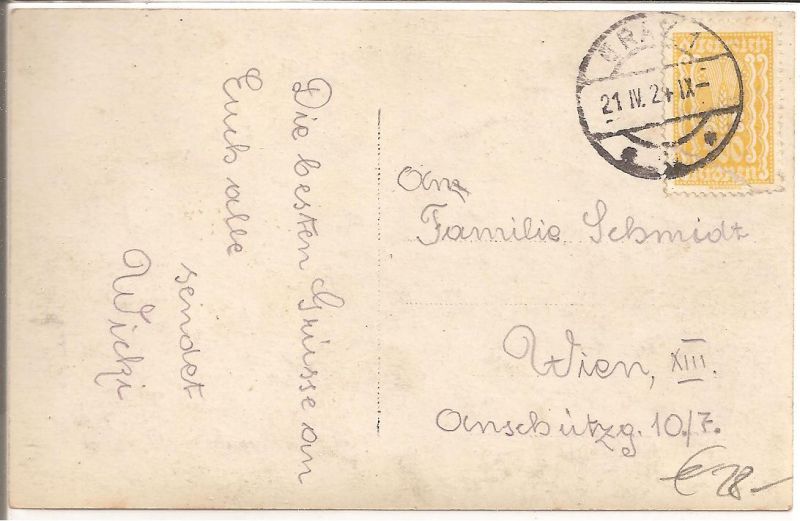 Die besten Grüsse an
Euch alle
sendet
Wicki
21 IV. 24 IX-
An
Familie Schmidt
Wien, XIII.
Anschützg. 10/7.
€ 28-